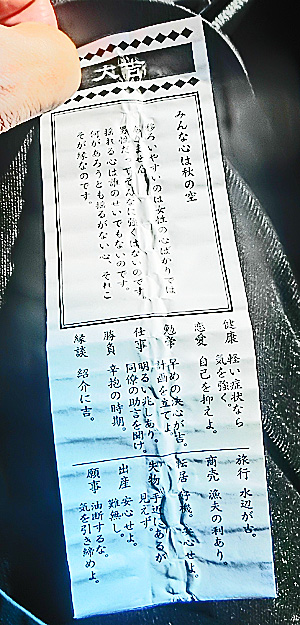 大吉
みんな心は秋の空
うつろいやすいのは女性の心ばかりでは
ありません。
男性だってそんなに強くはないのです。
揺れる心は誰のせいでもないのです。
何があろうとも揺るがない心、それこ
そが縁なのです。
健康 軽い症状なら
気を強く。
恋愛 自己を抑えよ。
勉学 早めの決心が吉。
計画を立てよ。
仕事 明るい兆しあり。
同僚の助言を聞け。
勝負 辛抱の時期。
縁談 紹介に吉。
旅行 水辺が吉。
商売 漁夫の利あり。
転居 好機。安心せよ。
失物 手近にあるが
見えず。
出産 安心せよ。
難無し。
願事 油断するな。
気を引き締めよ。